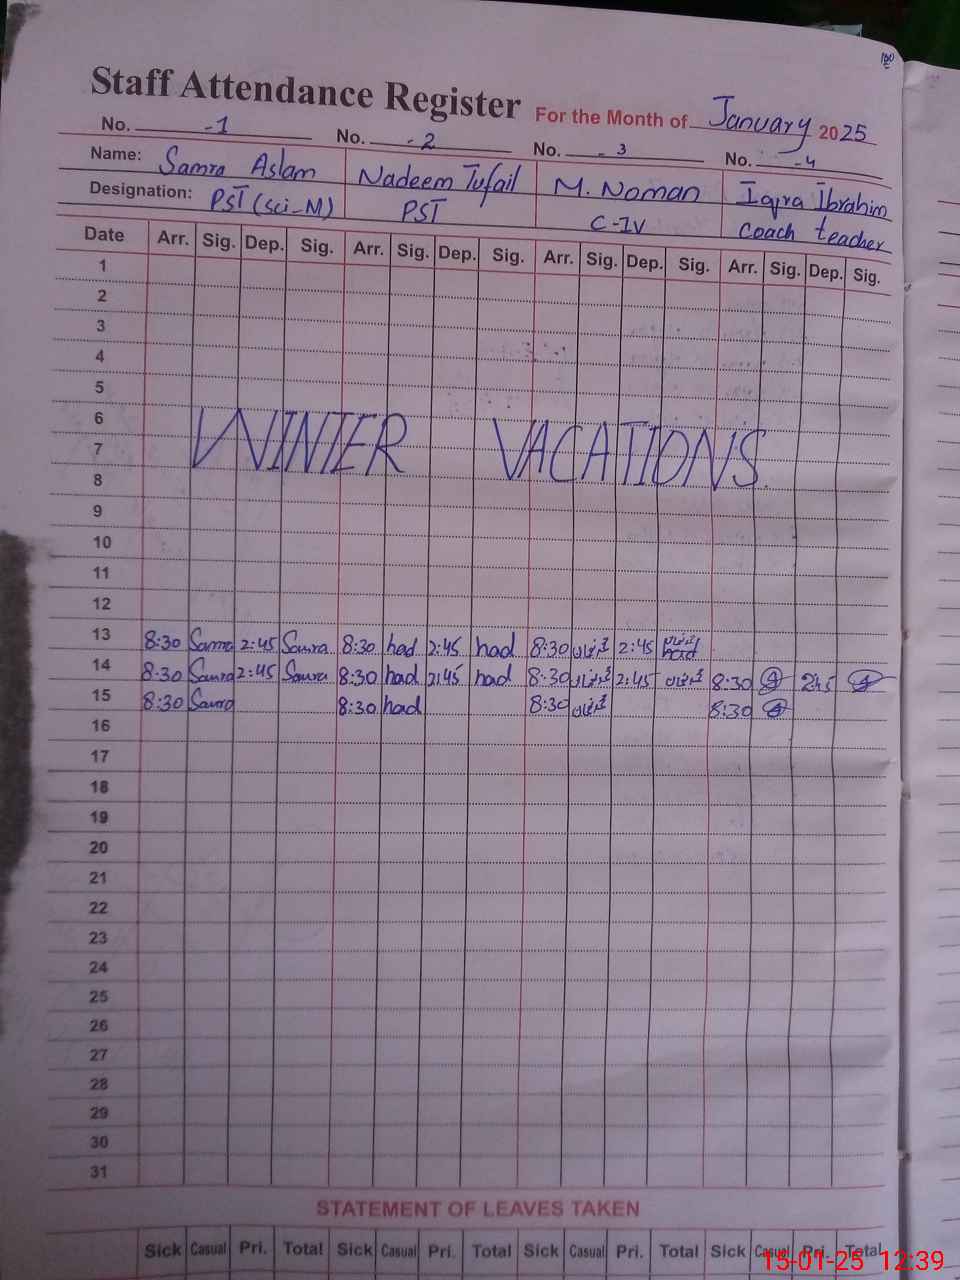 Staff Attendance Register For the Month of January 2025
No. -1 No. -2 No. -3 No. -4
Name: Samra Aslam Nadeem Tufail M. Noman Iqra Ibrahim
Designation: PST (Sci-M) PST C-IV coach teacher
Date Arr. Sig. Dep. Sig. Arr. Sig. Dep. Sig. Arr. Sig. Dep. Sig. Arr. Sig. Dep. Sig.
1
2
3
4
5
6
WINTER VACATIONS.
7
8
9
10
11
12
13 8:30 Samra 2:45 Samra 8:30 had 2:45 had 8:30 2:45
14 8:30 Samra 2:45 Samra 8:30 had 2:45 had 8:30 2:45 8:30 245
15 8:30 Samra 8:30 had 8:30 8:30
16
17
18
19
20
21
22
23
24
25
26
27
28
29
30
31
STATEMENT OF LEAVES TAKEN
Sick Casual Pri. Total Sick Casual Pri. Total Sick Casual Pri. Total Sick Casual Pri. Total
15-01-25 12:39